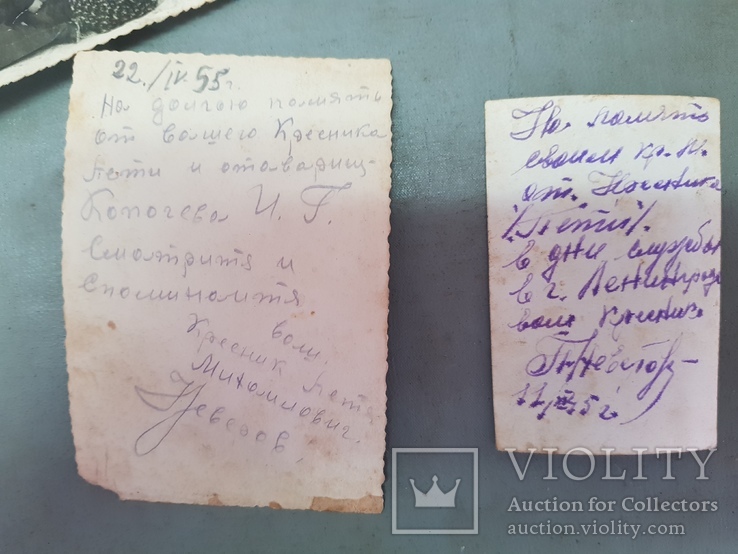 22./IV.55г.
На долгою помять
от вашего Кресника
Пети и отоварищ-
Копочева И. Г.
Смотрите и
Споминайтя
ваш.
Кресник Петя
Михайлович.
Неведов,
На память
своим кр. М.
от. Кресника
/Пети/.
в дни службы
в г. Ленинграде
ваш Кресник
55 г.
VIOLITY
Auction for Collectors
auction.violity.com